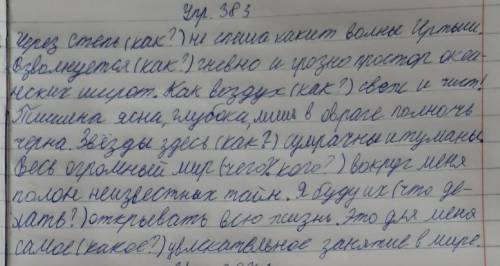 Упр. 383
Через степь (как?) не спеша катит волны Иртыш.
Взволнуется (как?) гневно и грозно простор океа-
нских широт. Как воздух (как?) свеж и чист!
Тишина ясна, глубока, лишь в овраге полночь
черна. Звёзды здесь (как?) сумрачны и туманы.
Весь огромный мир (чего? кого?) вокруг меня
полон неизвестных тайн. Я буду их (что де-
лать?) открывать всю жизнь. Это для меня
самое (какое?) увлекательное занятие в мире.